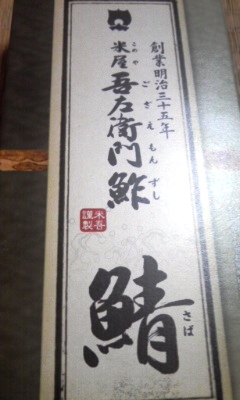 創業明治三十五年
米屋吾左衛門鮓
こめや ござえもんずし
米吾謹製
鯖
さば